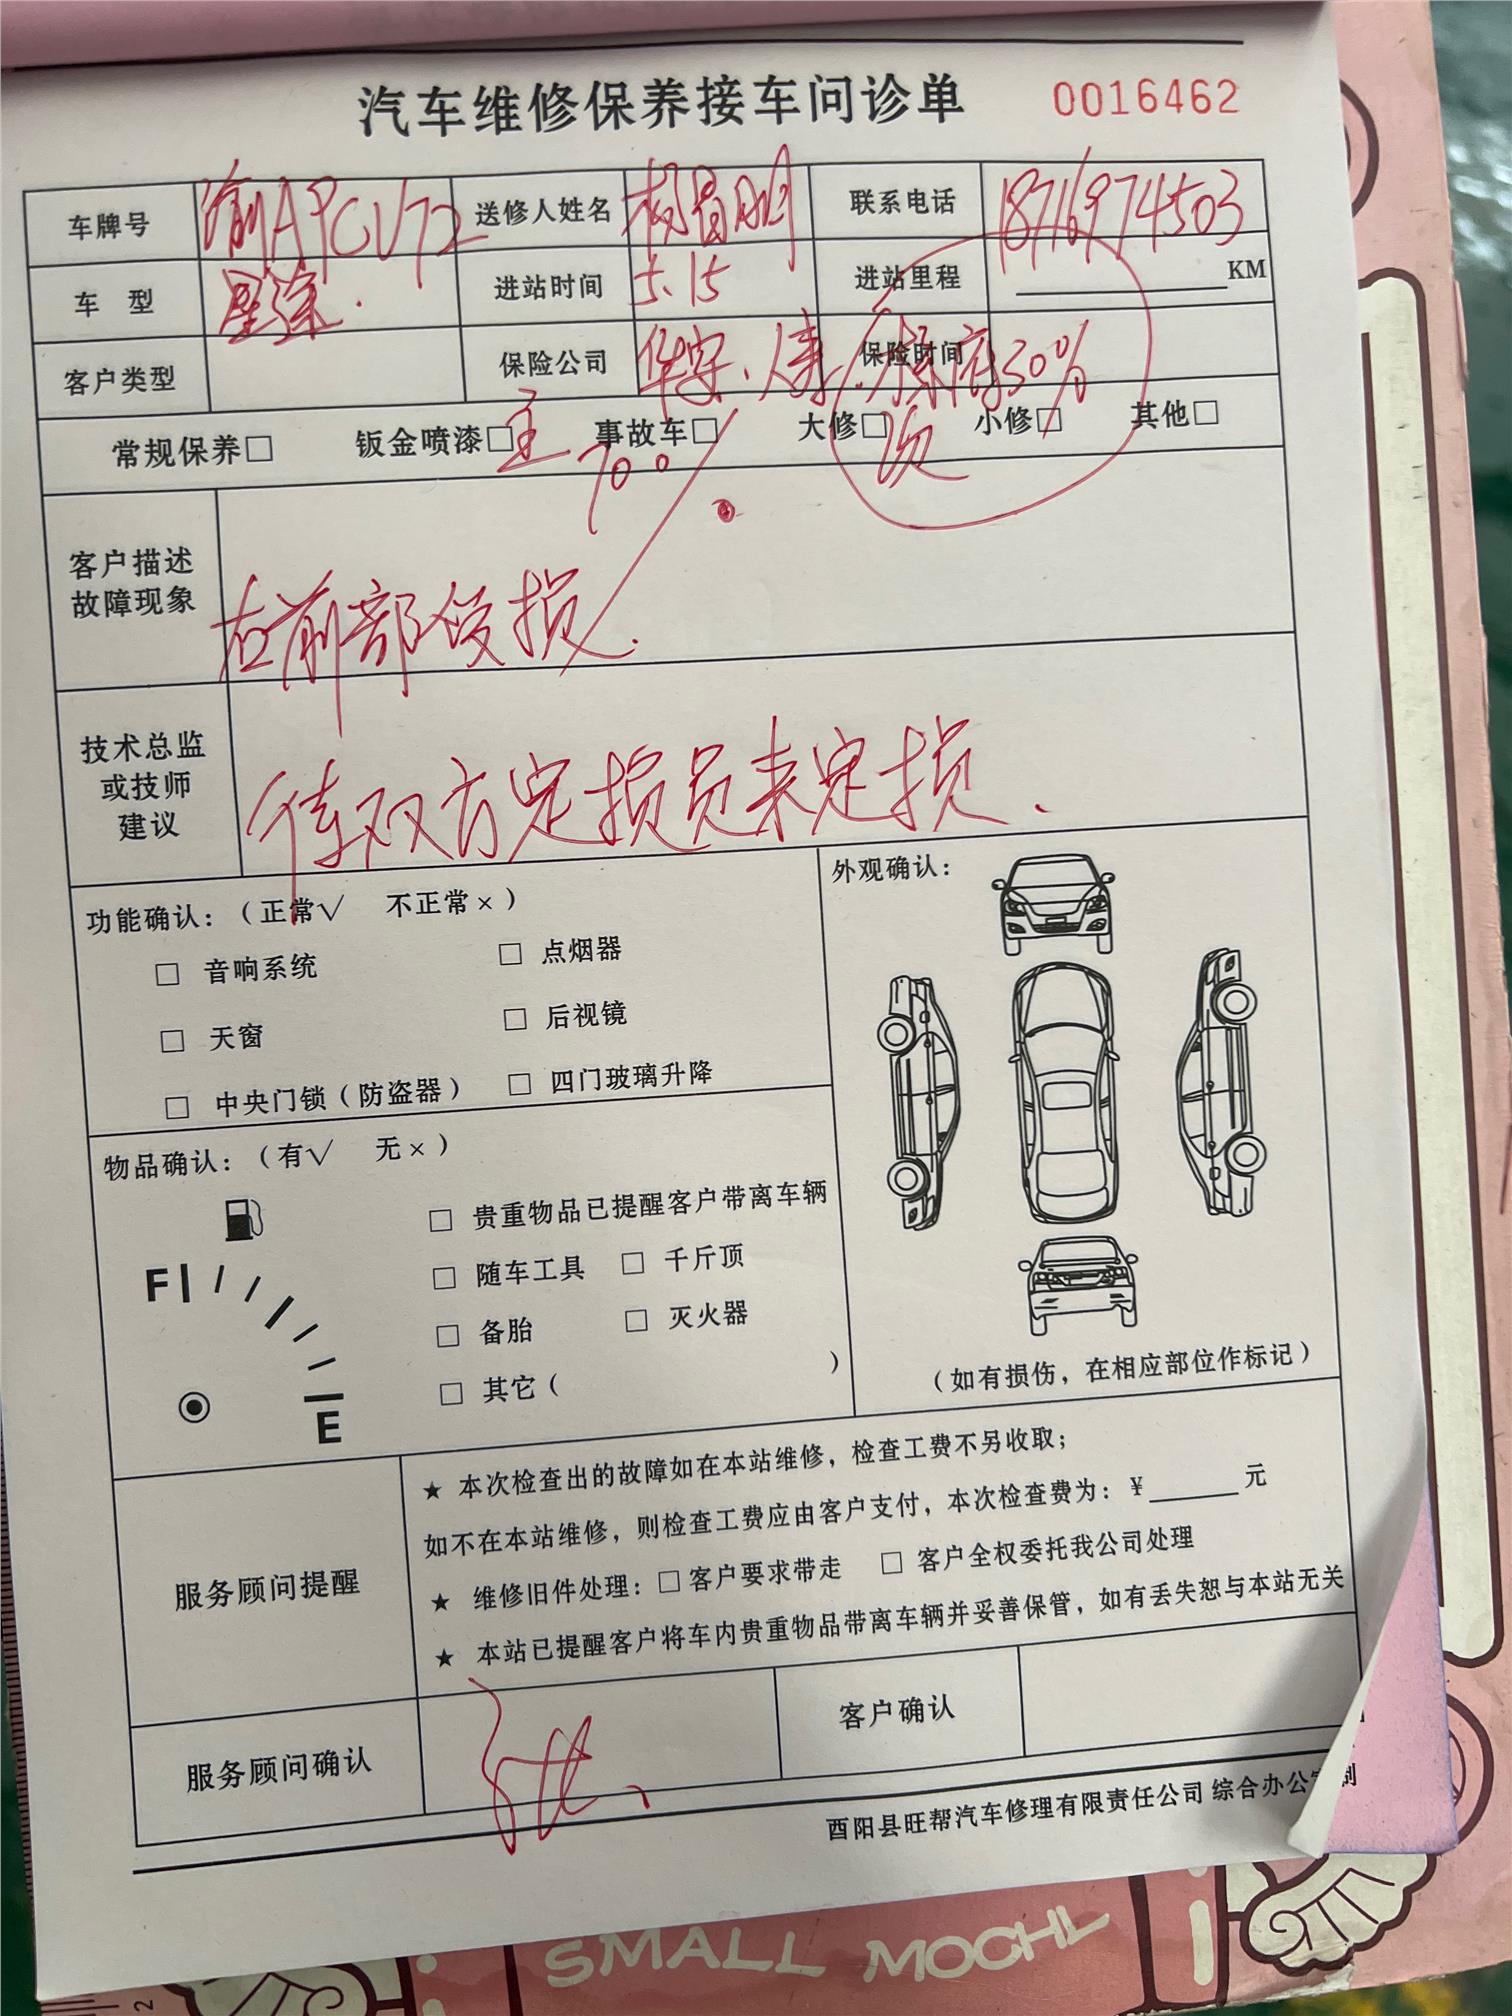 汽车维修保养接车问诊单 0016462
车牌号 渝APCV72 送修人姓名 杨昌明 联系电话 18716974503
车 型 星途. 进站时间 5.15 进站里程 KM
客户类型 保险公司 华安、人寿 保险时间
30%
常规保养□ 钣金喷漆□ 主 事故车□ 大修□ 次 小修□ 其他□
70%
客户描述
故障现象
右前部受损.
技术总监
或技师
建议
待双方定损员来定损.
功能确认:(正常√ 不正常×)
□ 音响系统 □ 点烟器
□ 天窗 □ 后视镜
□ 中央门锁(防盗器) □ 四门玻璃升降
外观确认:
(如有损伤,在相应部位作标记)
物品确认:(有√ 无×)
F
E
□ 贵重物品已提醒客户带离车辆
□ 随车工具 □ 千斤顶
□ 备胎 □ 灭火器
□ 其它( )
服务顾问提醒
★ 本次检查出的故障如在本站维修,检查工费不另收取;
如不在本站维修,则检查工费应由客户支付,本次检查费为:¥______元
★ 维修旧件处理:□客户要求带走 □ 客户全权委托我公司处理
★ 本站已提醒客户将车内贵重物品带离车辆并妥善保管,如有丢失恕与本站无关
服务顾问确认 客户确认
酉阳县旺帮汽车修理有限责任公司 综合办公室制
SMALL MOCHL
2